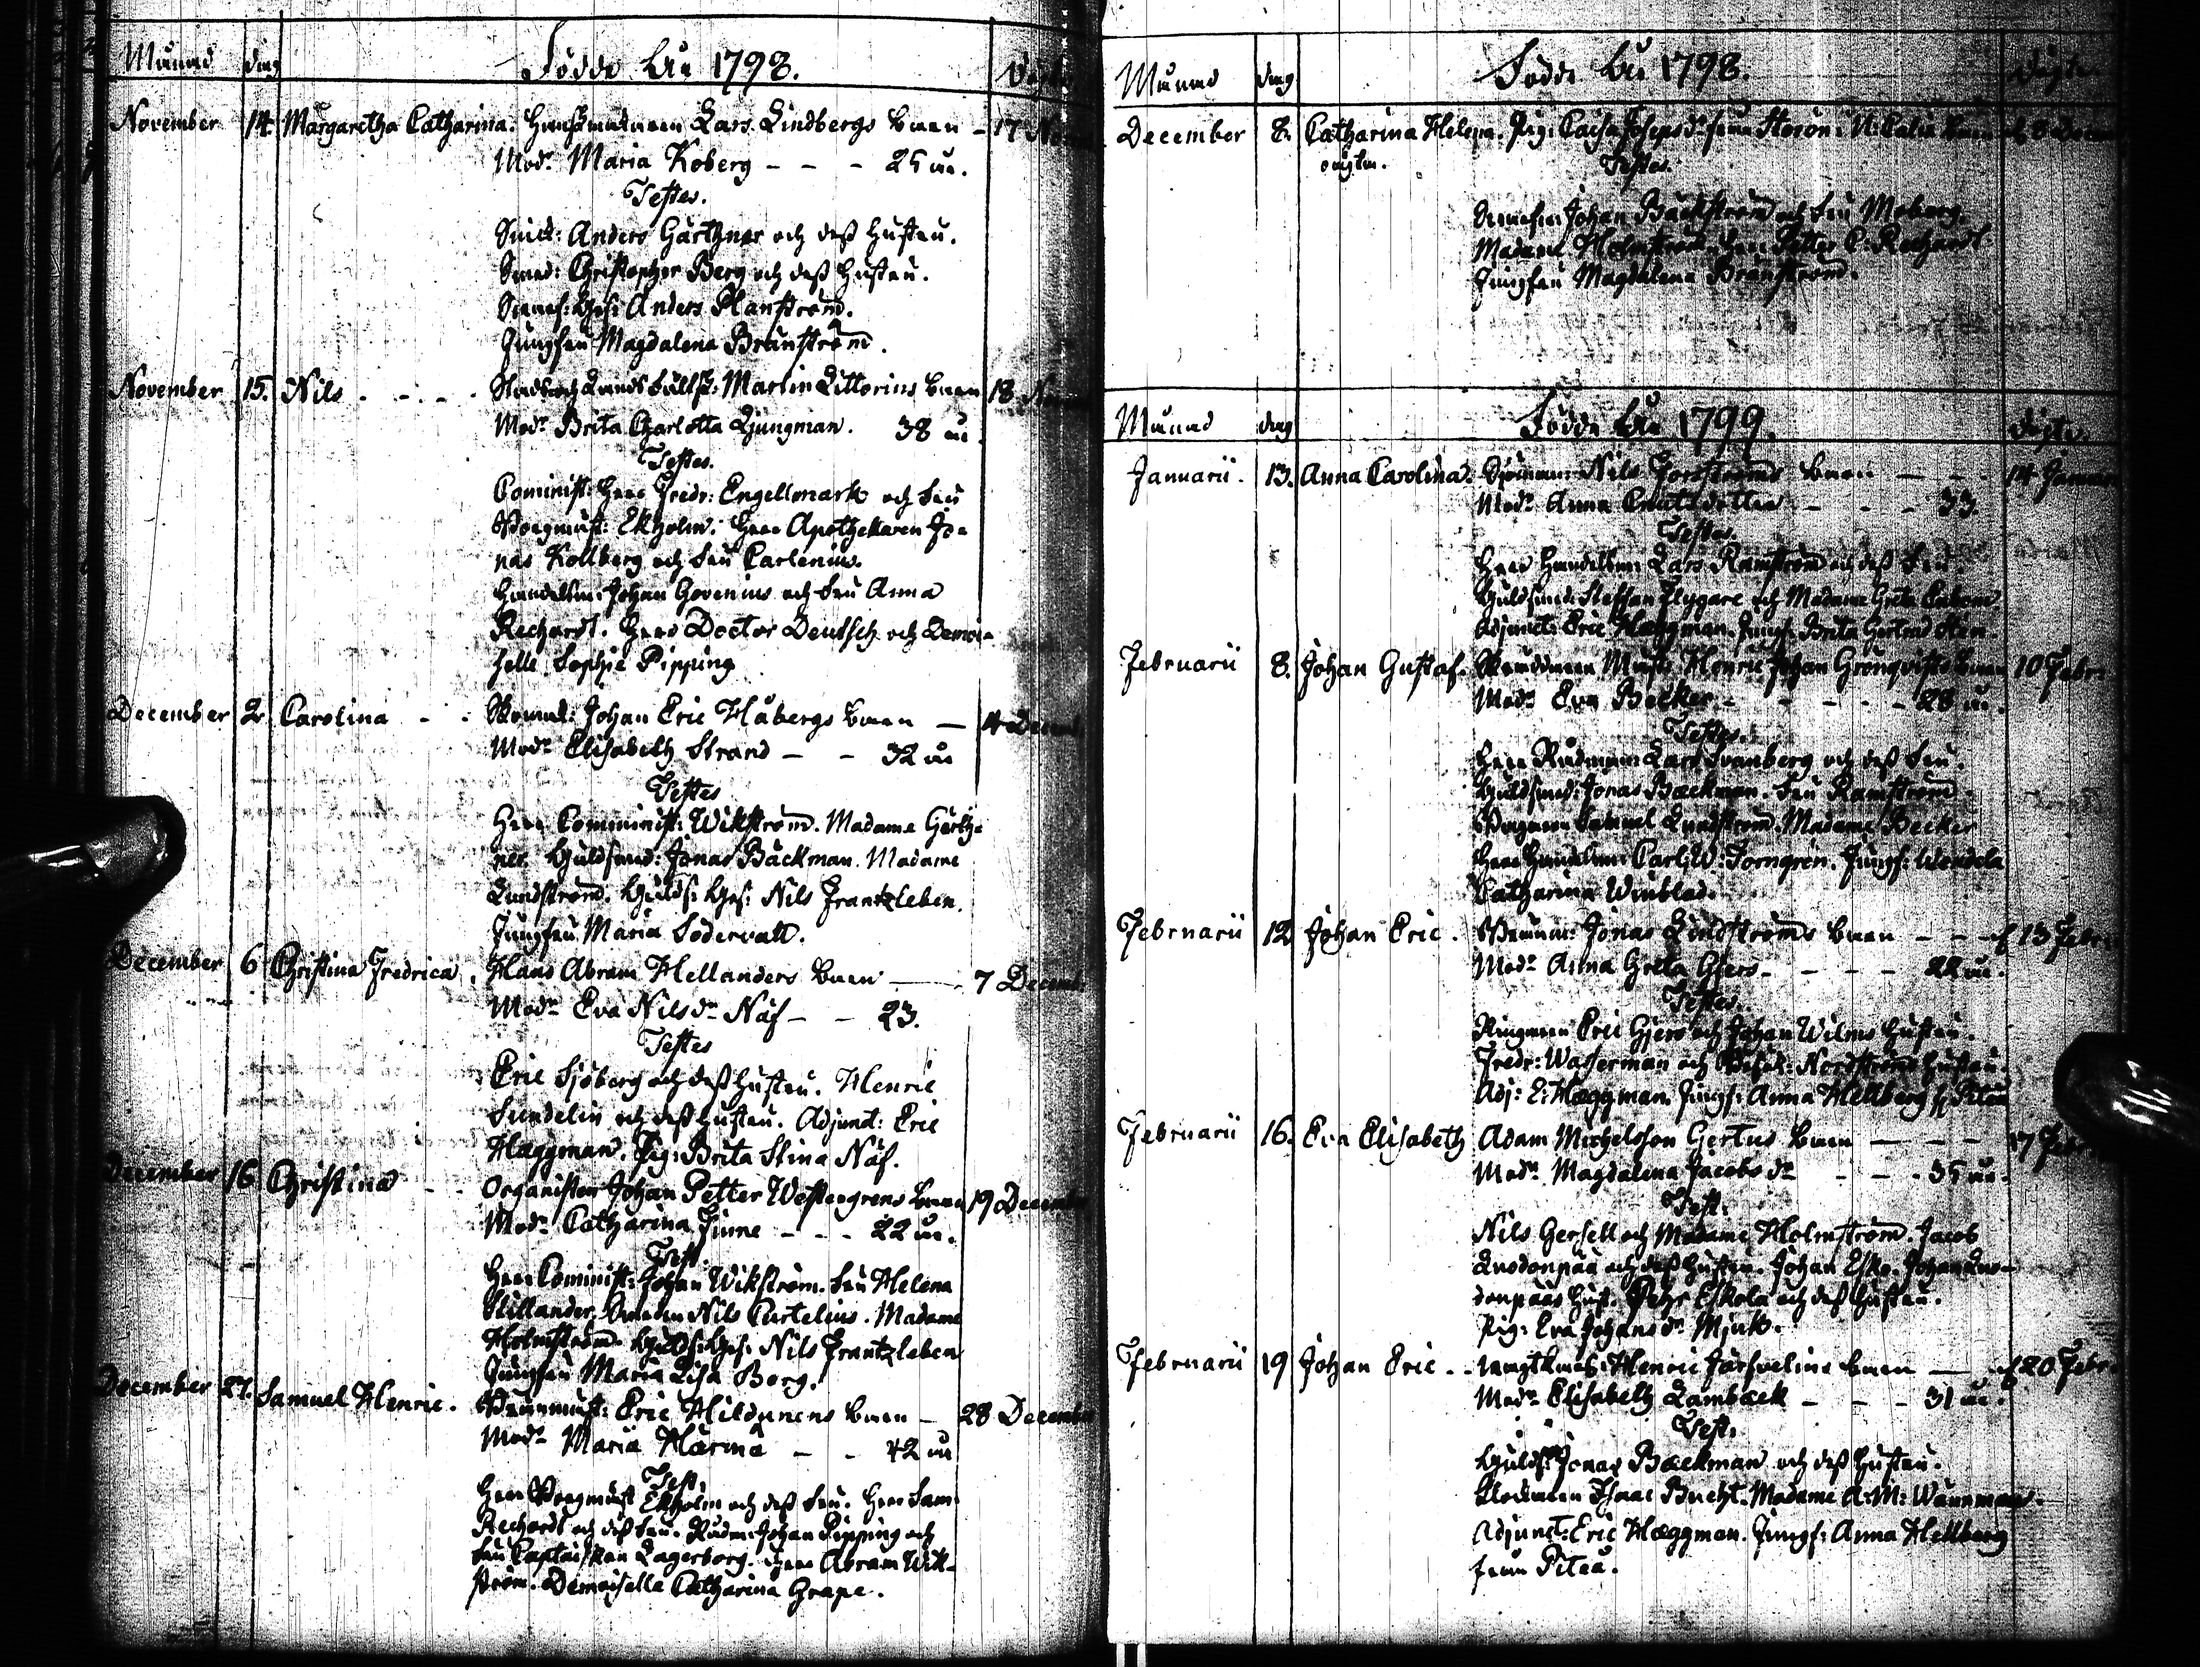 Månad dag Födde År 1798. Döpte
November 14. Margaretha Catharina. Lars Lindbergs barn - 17 Nov
Modr. Maria Koberg - - - 25 år.
Testes.
Anders Gärthner och dess hustru.
Smed: Christopher Berg och dess hustru.
Anders Planström.
Jungfru Magdalena Brunström.
November 15. Nils - - - Martin Littorins barn 18 Nov
Modr. Brita Charlotta Ljungman. 38 år
Testes.
Cominist: Herr Fredr: Engellmark och Fru
Borgmäst: Ekholm. Herr Apothekaren Jo-
nas Kollberg och Fru Carlenius.
Handelsm: Johan Govenius och Fru Anna
Rechardt. Herr Doctor Deutsch och Demoi-
selle Sophie Pipping
December 2. Carolina - - Johan Eric Håbergs barn - 4 Decemb.
Modr. Elisabeth Strand - - 32 år
Testes
Herr Comminist: Wikström. Madame Gärth-
ner. Guldsmed: Jonas Bäckman. Madame
Lundström. Gulds: Ges: Nils Frantzleben.
Jungfru Maria Södervall.
December 6 Christina Fredrica. Hans Abram Hellanders barn - 7 Decemb.
Modr. Eva Nilsdr. Näf - - 23.
Testes
Eric Sjöberg och dess hustru. Henric
Sundelin och dess hustru. Adjunct: Eric
Hæggman. Pig: Brita Stina Näf.
December 16 Christina - - Organisten Johan Petter Westergrens barn 19 December
Modr. Catharina Finne - - - 22 år.
Test.
Herr Cominist: Johan Wikström. Fru Helena
Nils Curtelius. Madame
Holmström. Gulds: Ges: Nils Frantzleben
Jungfru Maria Lisa Borg.
December 27. Samuel Henric. Eric Hildunens barn - 28 December
Modr. Maria Harma - - 42 år
Test.
Herr Borgmäst Ekholm och dess Fru. Herr Sam
Rechardt och dess Fru. Rådm: Johan Pipping och
Fru Captaiskan Lagerborg. Herr Abram Wik-
ström. Demoiselle Catharina Grape.
Månad dag Födde År 1798. Döpte
December 8. Catharina Helena. Pig: Caisa Josepsdr. från
oägta. Testes.
Johan Bäckström och Fru Moberg.
Madame Holmström. Petter C. Rechardt.
Jungfru Magdalena Brunström.
Månad dag Födde År 1799. Döpte.
Januarii. 13. Anna Carolina. Nils Forsströms barn - - - 14 Januar
Modr. Anna - - - 33.
Testes.
Herr Handelsm: Lars Ramström och dess Fru.
Guldsmed: Steffan Flygare och Madame Greta
Adjunct: Eric Hæggman. Jungf: Brita Gertrud
Februarii 8. Johan Gustaf. Henric Johan Grönqvists barn 10 Febr.
Modr. Eva Becker - - - - - 28 år.
Testes.
Herr Rådman: Lars Svanberg och dess Fru.
Guldsmed: Jonas Bæckman. Fru Ramström
Samuel Lundström. Madame Becker
Herr Handelsm: Carl W: Torngrén. Jungf: Wendela
Catharina Winblad.
Februarii 12 Johan Eric. Jonas Lindströms barn - - - 13 Febr.
Modr. Anna Greta Gjers - - - - 22 år.
Testes.
Eric Gjers och Johan Wilms hustru.
Fredr: Wasserman och Nordströms hustru.
Adj: E: Hæggman. Jungf: Anna Hellberg Piteå
Februarii 16. Eva Elisabeth Adam Michelsson Gertus barn - - - 17 Febr
Modr. Magdalena Jacobsdr - - - 35 år.
Test:
Nils Gersell och Madame Holmström. Jacob
och dess hustru. Johan Esko. Johan
hust. Petr Eskola och dess hustru.
Pig: Eva Johansdr. Mjuk.
Februarii 19 Johan Eric - - Henric barn - 20 Febr.
Modr. Elisabeth Lambäck - - - 31 år.
Test:
Gulds: Jonas Bæckman och dess hustru.
Klockaren Isaac Bucht. Madame A: M: Wännman.
Adjunct: Eric Hæggman. Jungf: Anna Hellberg
från Piteå.